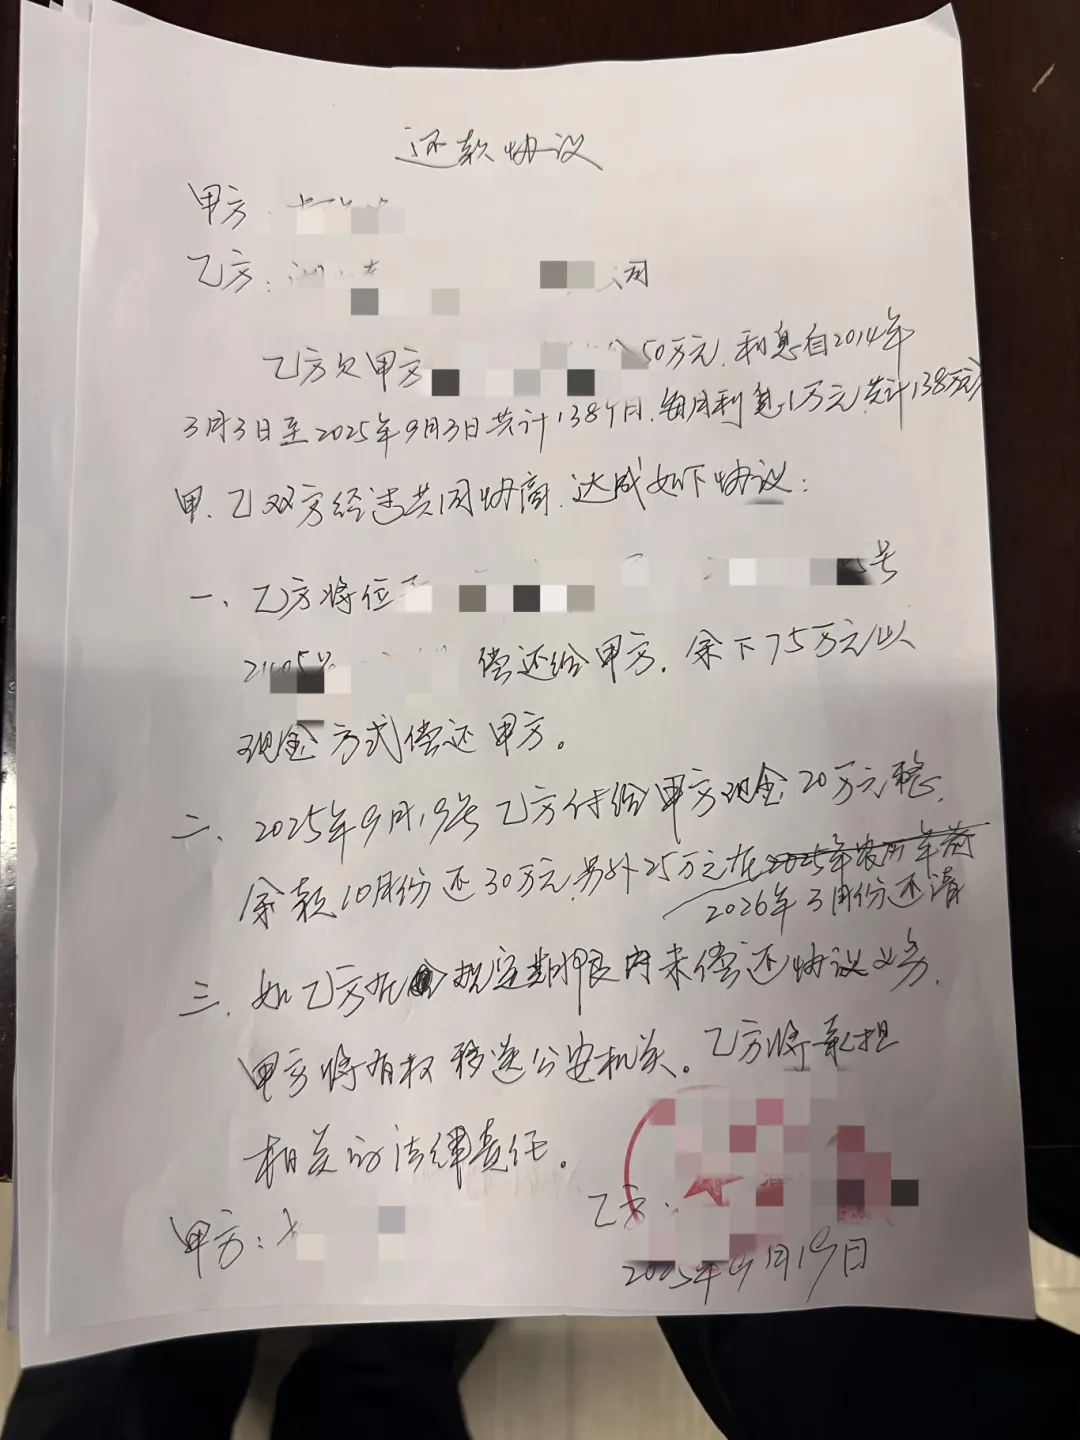 还款协议
甲方:
乙方: 司
乙方欠甲方 50万元,利息自2014年
3月3日至2025年9月3日共计138个月,每月利息1万元,共计138万元,
甲、乙双方经过共同协商,达成如下协议:
一、乙方将位于 号
偿还给甲方,余下75万元以
现金方式偿还甲方。
二、2025年9月19号乙方付给甲方现金20万元整,
余款10月份还30万元,另外25万元在2025年农历年前
2026年3月份还清
三、如乙方在规定期限内未偿还协议义务,
甲方将有权移送公安机关。乙方将承担
相关的法律责任。
甲方: 乙方:
2025年9月19日